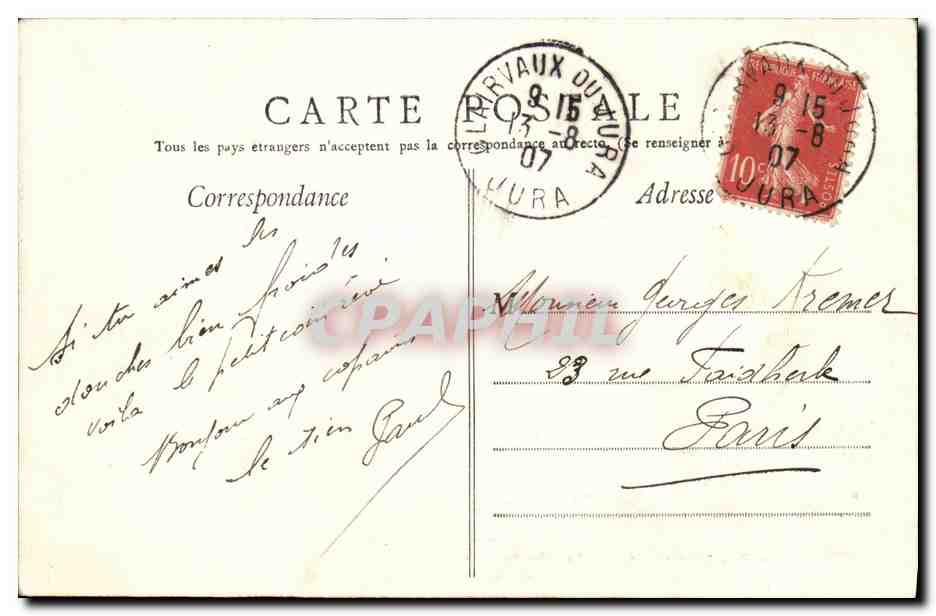 CARTE POSTALE
Tous les pays etrangers n'acceptent pas la correspondance au recto. (Se renseigner à
Correspondance
Adresse
CLAIRVAUX DU JURA
9 15
13 -8
07
JURA
RÉPUBLIQUE FRANÇAISE
10
POSTES
9 15
13 -8
07
JURA
Si tu aimes les
douches bien froides
voilà le petit coin rêvé
Bonjour aux copains
le tien Paul
Monsieur Georges Kremer
23 rue Faidherbe
Paris
CPAPHIL